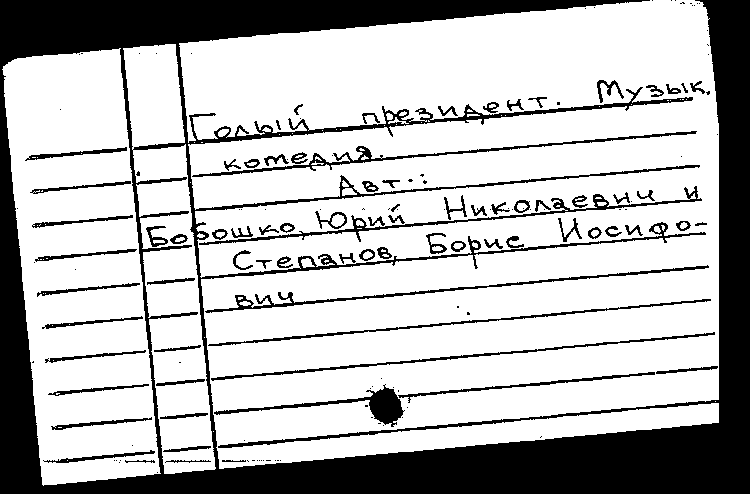 Голый президент. Музык.
комедия.
Авт.:
Бобошко, Юрий Николаевич и
Степанов, Борис Иосифо-
вич